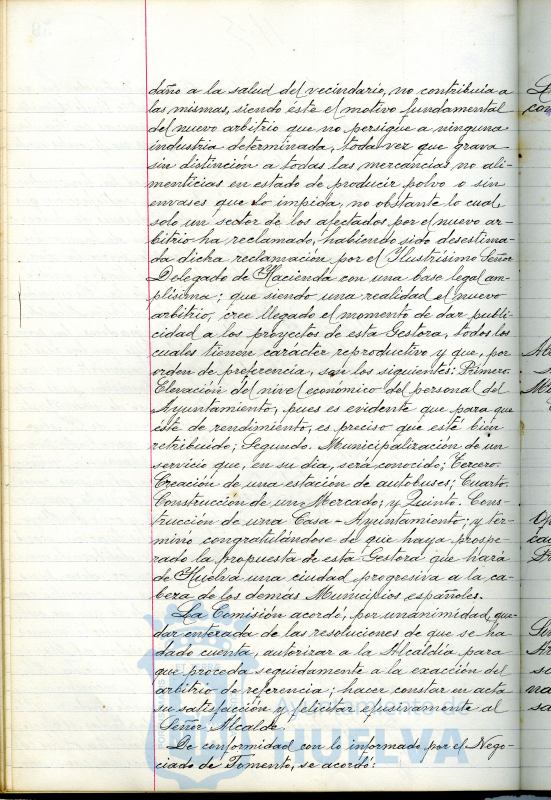 daño a la salud del vecindario, no contribuia a
las mismas, siendo éste el motivo fundamental
del nuevo arbitrio que no persigue a ninguna
industria determinada, toda vez que grava
sin distinción a todas las mercancias no ali-
menticias en estado de producir polvo o sin
envases que lo impida, no obstante lo cual,
solo un sector de los afectados por el nuevo ar-
bitrio ha reclamado, habiendo sido desestima-
da dicha reclamación por el Ilustrísimo Señor
Delegado de Hacienda con una base legal am-
plisima; que siendo una realidad el nuevo
arbitrio, cree llegado el momento de dar publi-
cidad a los proyectos de esta Gestora, todos los
cuales tienen carácter reproductivo y que, por
orden de preferencia, son los siguientes: Primero.
Elevación del nivel económico del personal del
Ayuntamiento, pues es evidente que para que
éste de rendimiento, es preciso que esté bien
retribuido; Segundo. Municipalización de un
servicio que, en su dia, será conocido; Tercero.
Creación de una estación de autobuses; Cuarto.
Construcción de un Mercado; y Quinto. Cons-
trucción de una Casa-Ayuntamiento; y ter-
mino congratulándose de que haya prospe-
rado la propuesta de esta Gestora que hará
de Huelva una ciudad progresiva a la ca-
beza de los demás Municipios españoles.
La Comisión acordó, por unanimidad, que-
dar enterada de las resoluciones de que se ha
dado cuenta, autorizar a la Alcaldia para
que proceda seguidamente a la exacción del
arbitrio de referencia; hacer constar en acta
su satisfacción y felicitar efusivamente al
Señor Alcalde.
De conformidad con lo informado por el Nego-
ciado de Fomento, se acordó:
HUELVA